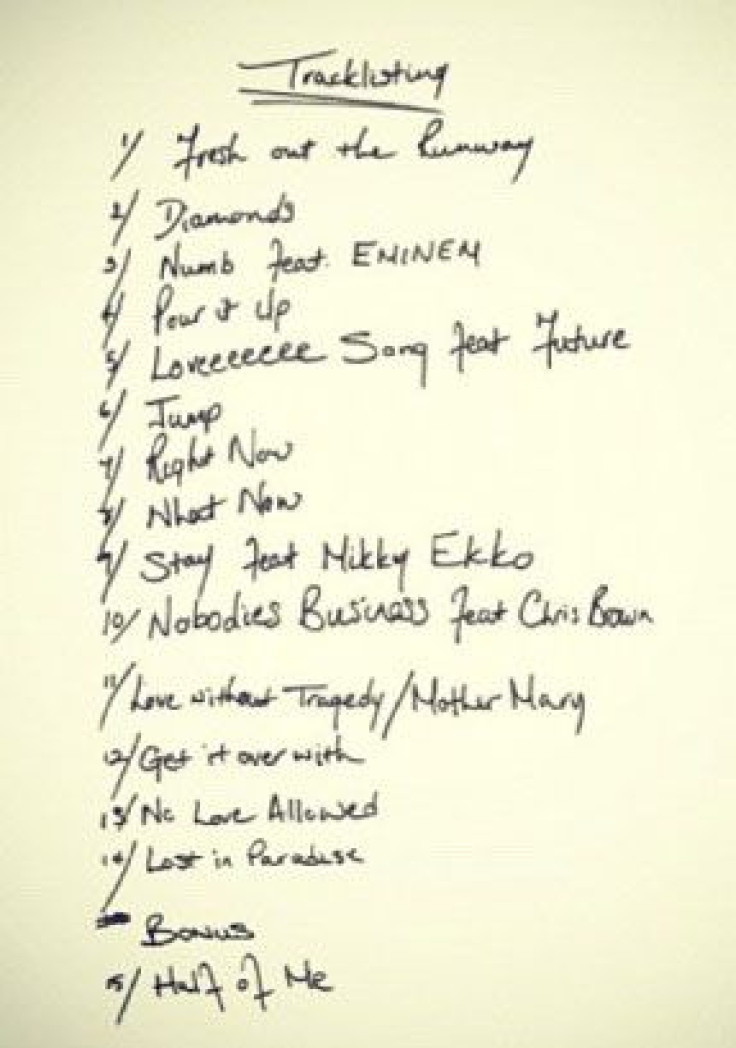 Tracklisting
1/ Fresh out the Runway
2/ Diamonds
3/ Numb feat. EMINEM
4/ Pour it Up
5/ Loveeeeeee Song feat Future
6/ Jump
7/ Right Now
8/ What Now
9/ Stay feat Mikky Ekko
10/ Nobodies Business feat Chris Brown
11/ Love without Tragedy/Mother Mary
12/ Get it over with
13/ No Love Allowed
14/ Lost in Paradise
Bonus
15/ Half of Me